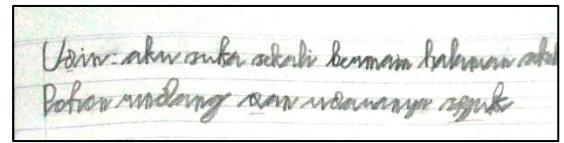 Udin: aku suka sekali bermain halaman
Pohon rindang dan udaranya sejuk